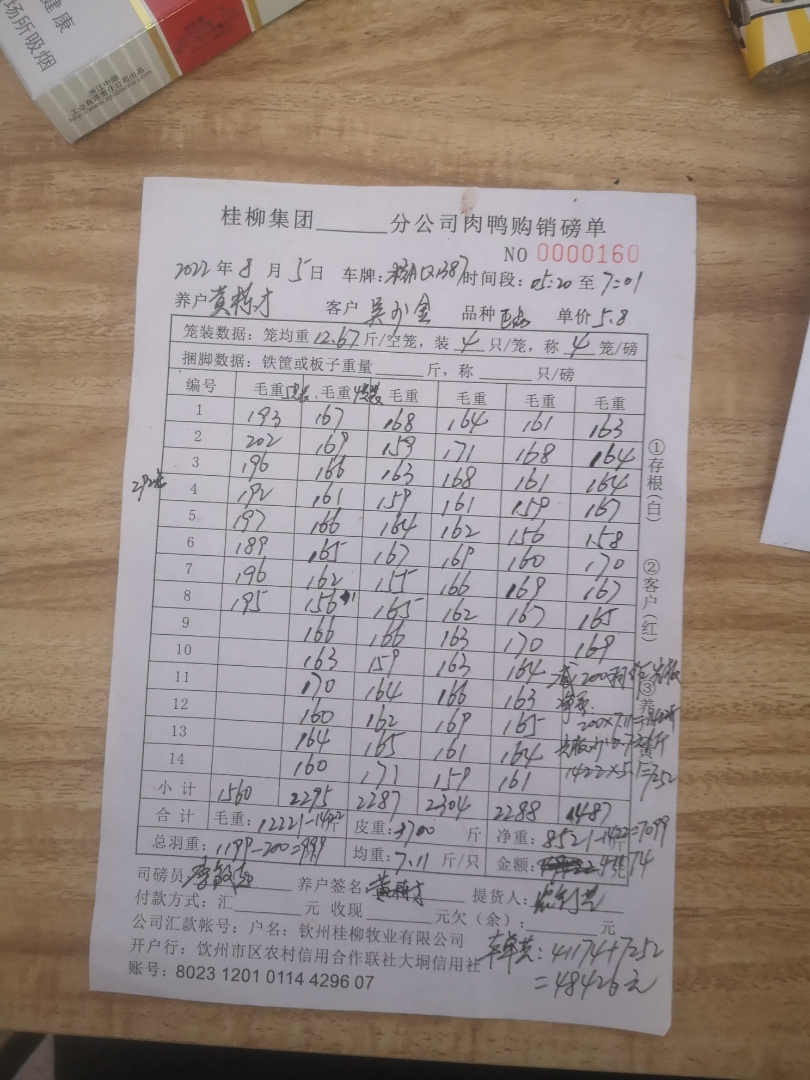 健康
场所吸烟
浙江中烟
工业有限责任公司出品
桂柳集团______分公司肉鸭购销磅单
NO 0000160
2022年8月5日 车牌: 时间段:05:20至7:01
养户黄栋才 客户吴少金 品种 单价5.8
笼装数据:笼均重12.67斤/空笼,装4只/笼,称4笼/磅
捆脚数据:铁筐或板子重量______斤,称______只/磅
编号 毛重 毛重 毛重 毛重 毛重 毛重
1 193 167 168 164 161 163
2 202 169 159 171 168 164
3 196 166 163 168 161 164
4 192 161 159 161 159 167
5 197 166 164 162 156 158
6 189 165 167 169 160 170
7 196 162 155 166 169 167
8 195 156 165 162 167 165
9 166 166 163 170 169
10 163 159 163 164
11 170 164 166 163
12 160 162 169 165
200×7.11=1422斤
13 164 165 161 164
14 160 171 159 161
1422×5.1=7252
小计 1560 2295 2287 2304 2288 1487
合计 毛重:12221-1422斤 皮重:3700斤 净重:8521-1422斤=7099
总羽重:1199-200=999 均重:7.11斤/只 金额:41174
①存根(白)
②客户(红)
③养
司磅员 养户签名:黄栋才 提货人:
付款方式:汇______元 收现______元欠(余):______元
公司汇款帐号:户名:钦州桂柳牧业有限公司
开户行:钦州市区农村信用合作联社大垌信用社
账号:8023 1201 0114 4296 07
41174+7252
=48426元